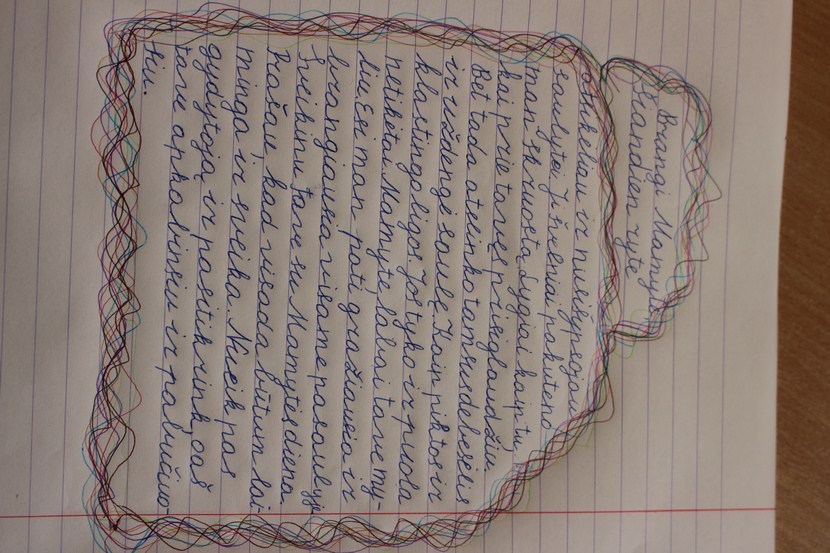 Brangi Mamyte
Šiandien ryte
atsikėliau ir nusišypsojau
saulytei. Ji švelniai pakuteno
man skruostą. Lygiai kaip tu,
kai prie tavęs prisiglaudžiu.
Bet tada atslinko tamsus debesėlis
ir uždengė saulę. Kaip piktos ir
klastingo ligos. Jos tyko ir puola
netikėtai. Mamyte labai tave my-
liu. Esi man pati gražiausia ir
brangiausia visame pasaulyje
Sveikinu tave su Mamytės diena
Prašau kad visada būtum lai-
minga ir sveika. Nueik pas
gydytoją ir pasitikrink, oaš
tave apkabinsiu ir pabučiuo-
siu.